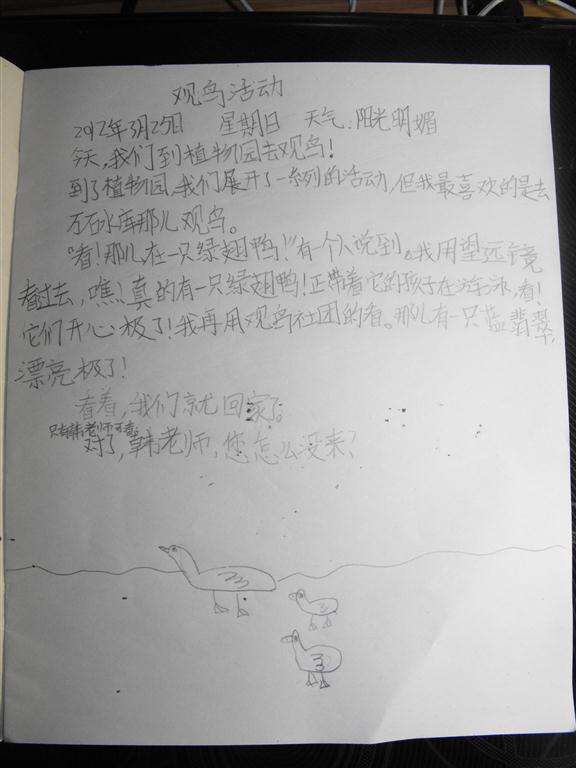 观鸟活动
2012年3月25日 星期日 天气：阳光明媚
今天，我们到植物园去观鸟！
到了植物园，我们展开了一系列的活动，但我最喜欢的是去
万石水库那儿观鸟。
“看！那儿在一只绿翅鸭！”有一个人说到。我用望远镜
看过去，瞧！真的有一只绿翅鸭！正带着它的孩子在游泳，看！
它们开心极了！我再用观鸟社团的看。那儿有一只蓝翡翠，
漂亮极了！
看着，我们就回家了。
只有韩老师可看。
对了，韩老师，您怎么没来？